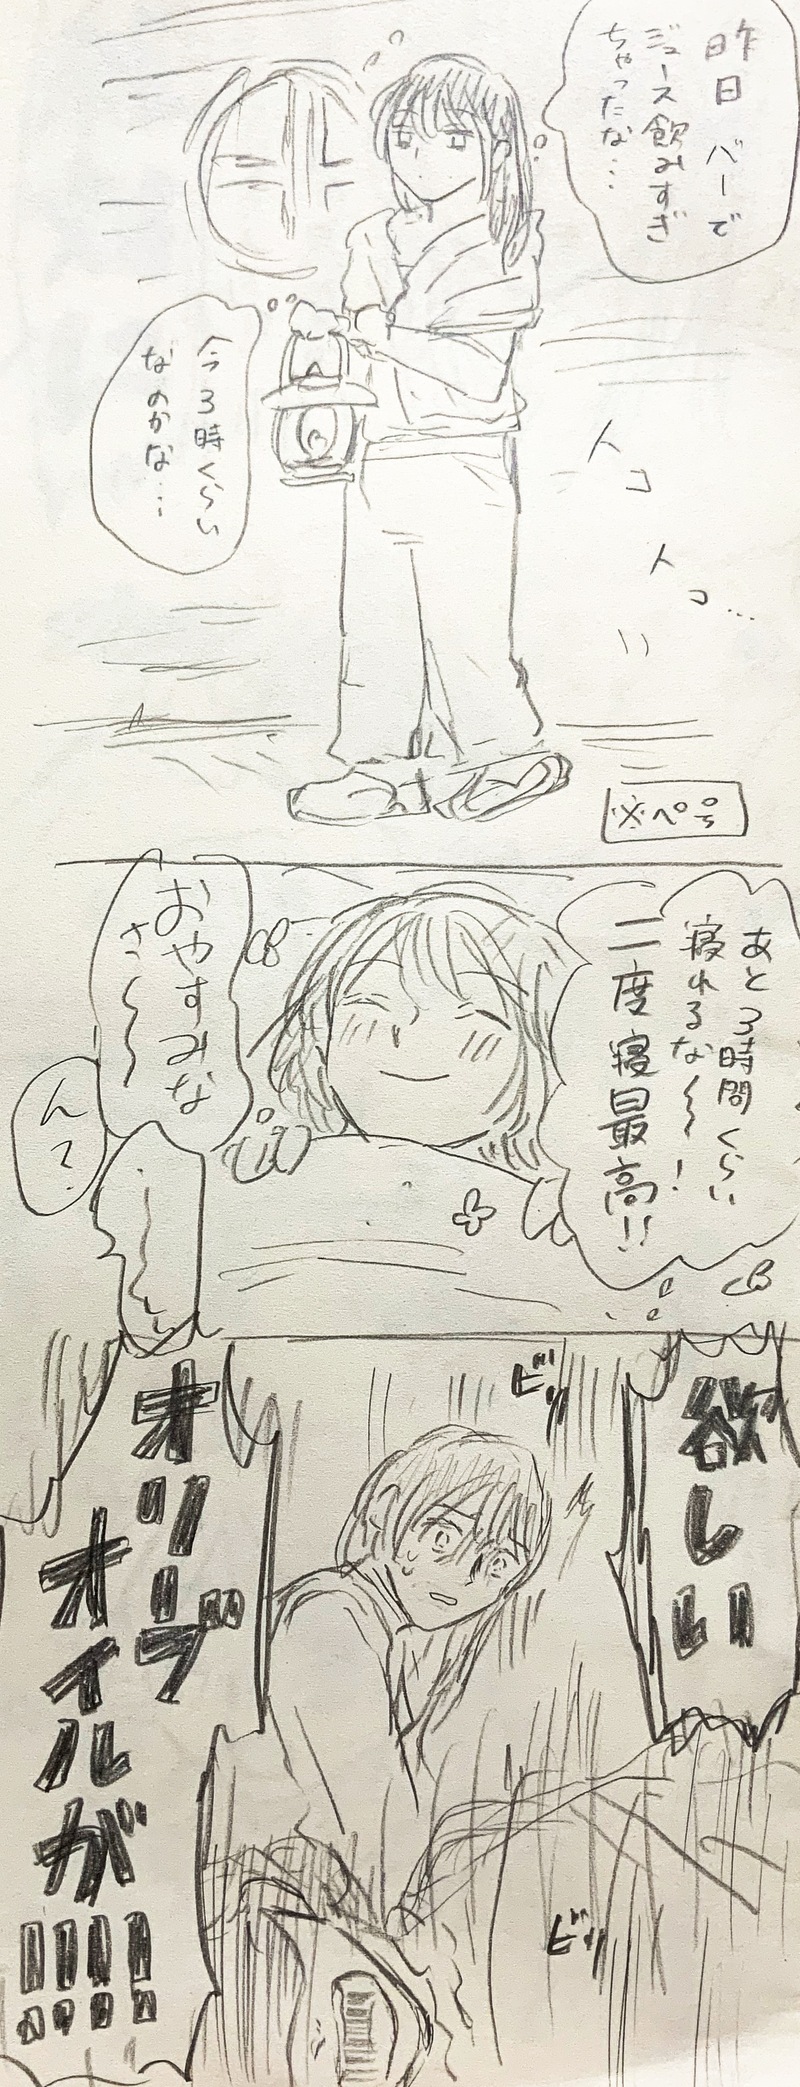 昨日 バーで
ジュース飲みすぎ
ちゃったな…
今3時くらい
なのかな…
トコ
トコ…
※ペろ
あと3時間くらい
寝れるな〜!
二度寝最高!!
おやすみな
さ〜〜
ん?
欲しい
ビッ
オリーブ
オイルが!!!!
ビッ